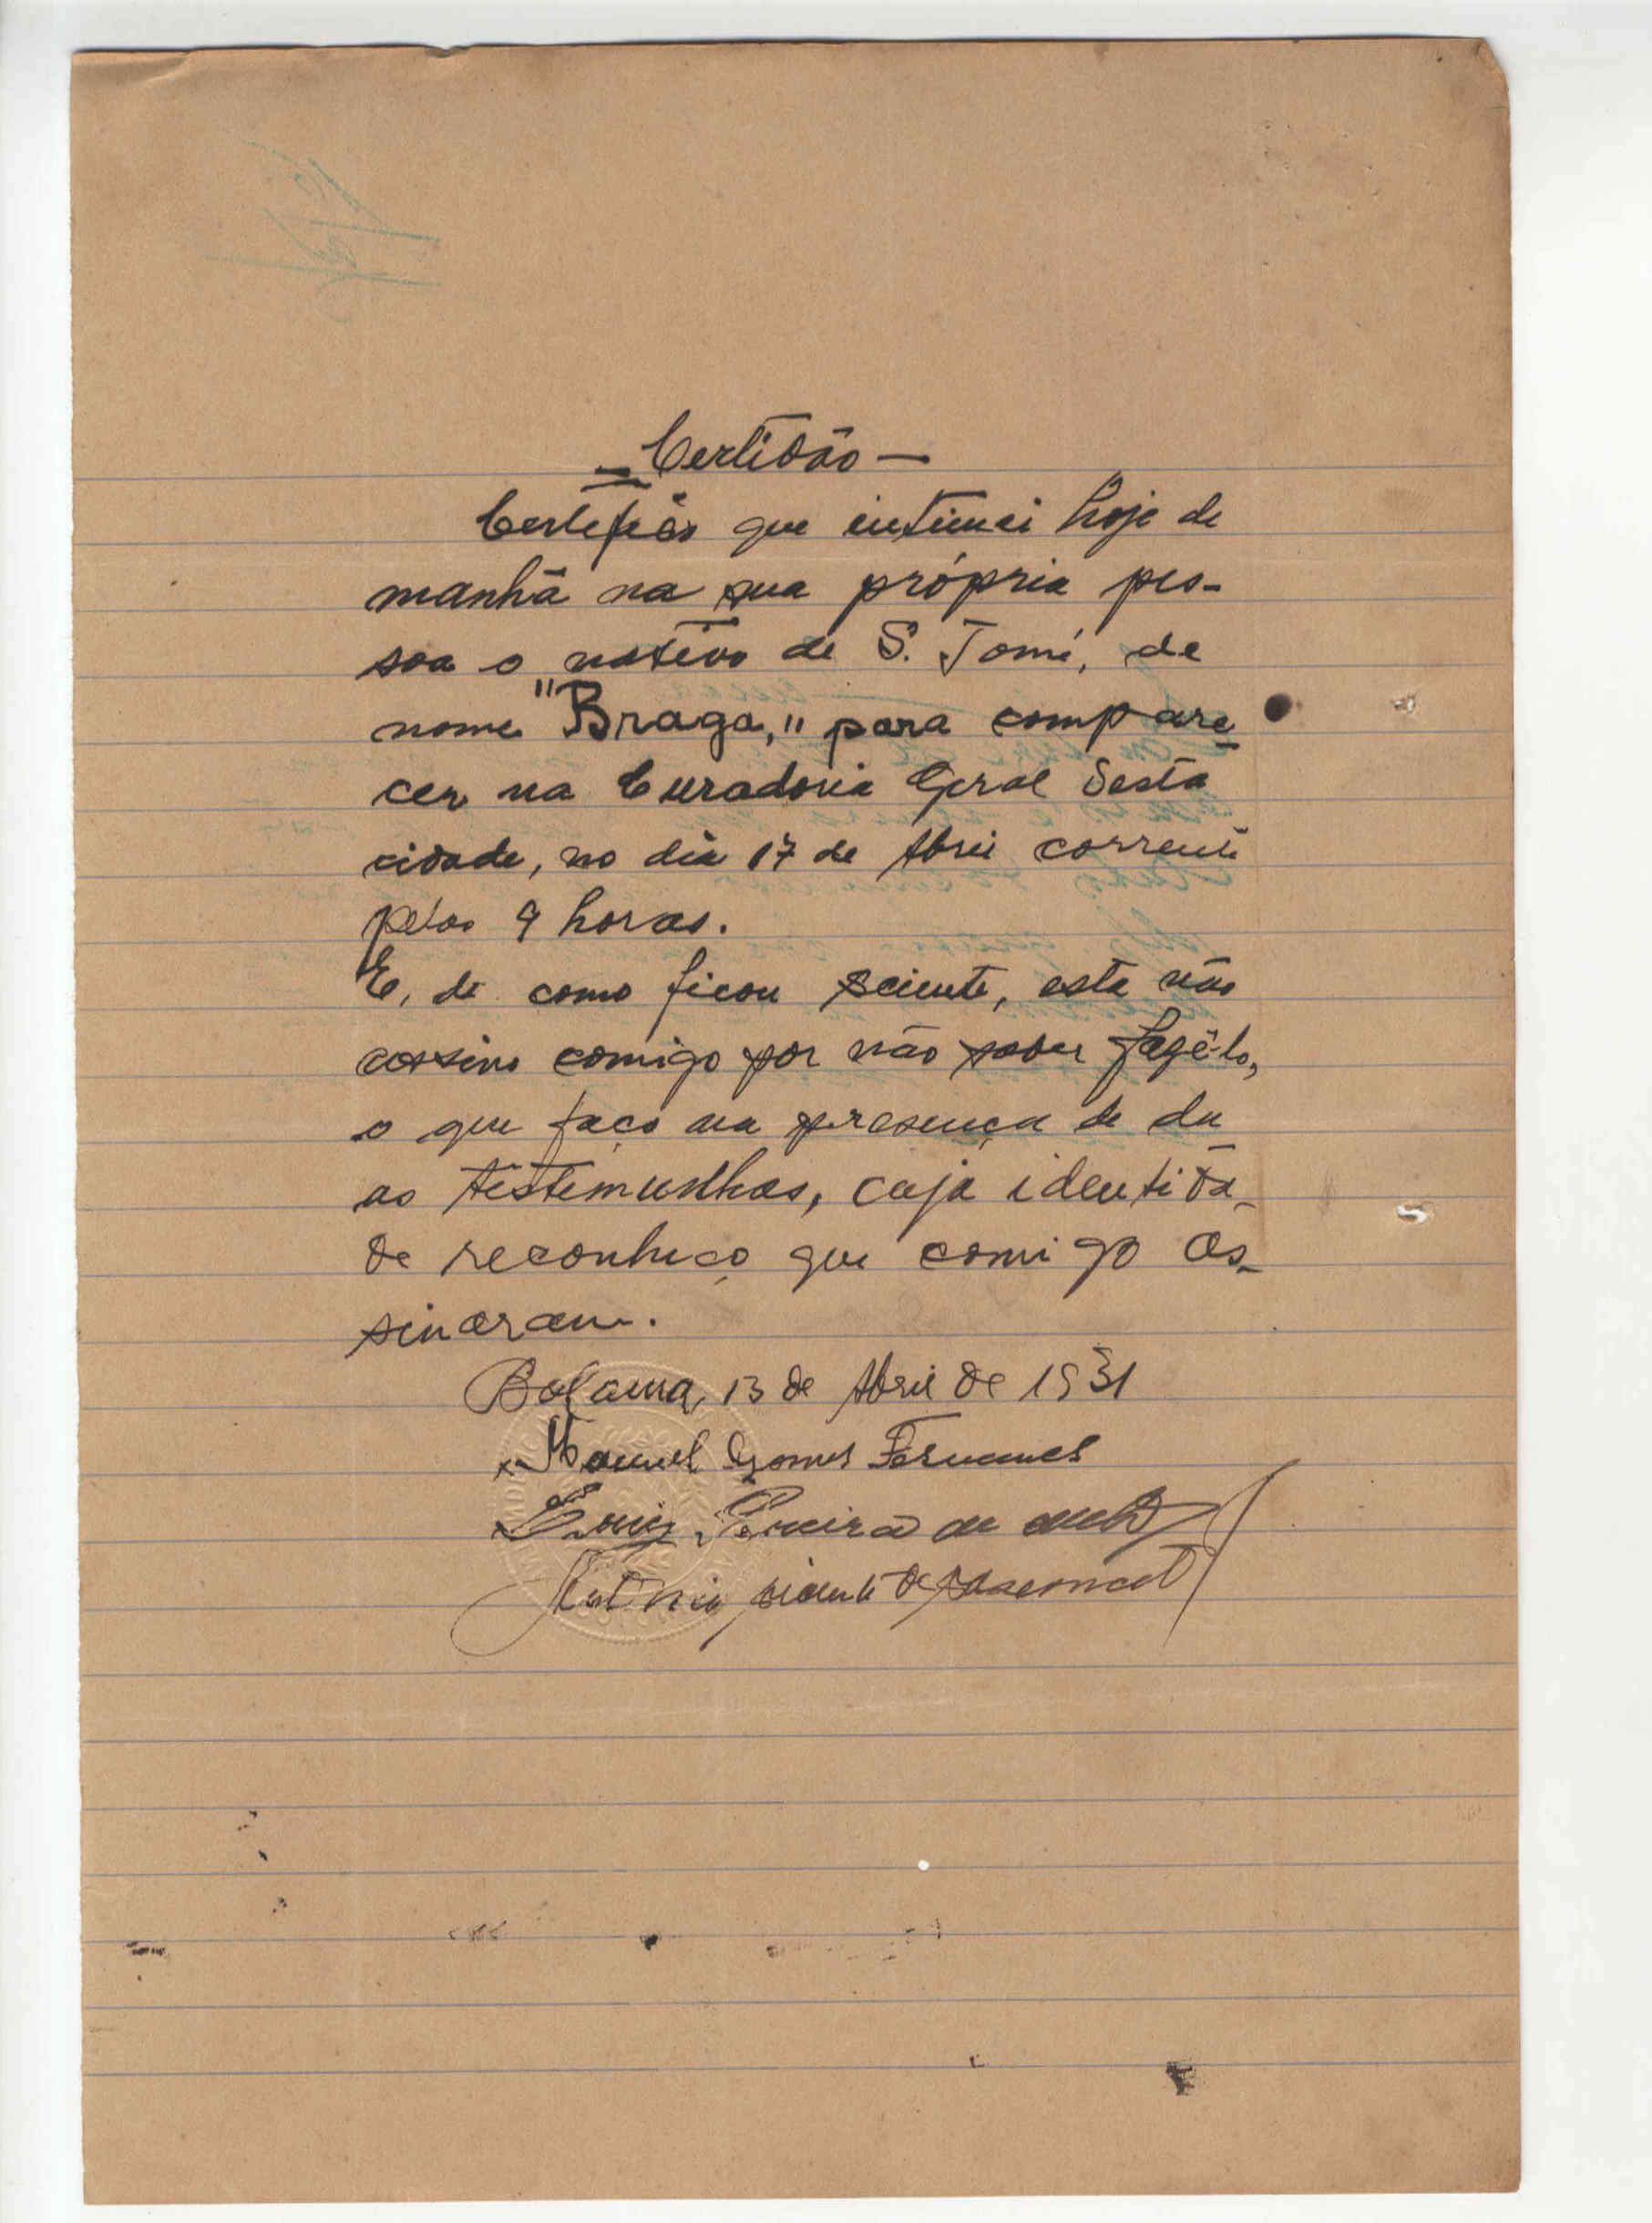 = Certidão —
Certefico que intimei hoje de
manhã na sua própria pes-
soa o nativo de S. Tomé, de
nome "Braga," para compare
cer na Curadoria Geral desta
cidade, no dia 17 de Abril corrente
pelas 9 horas.
E, de como ficou sciente, esta não
assina comigo por não saber fazê-lo,
o que faço na presença de du
as testemunhas, cuja identida-
de reconheço que comigo as-
sinaram.
Bolama, 13 de Abril de 1931
Manuel Gomes Fernandes
Luiz Pereira de
António Vicente de